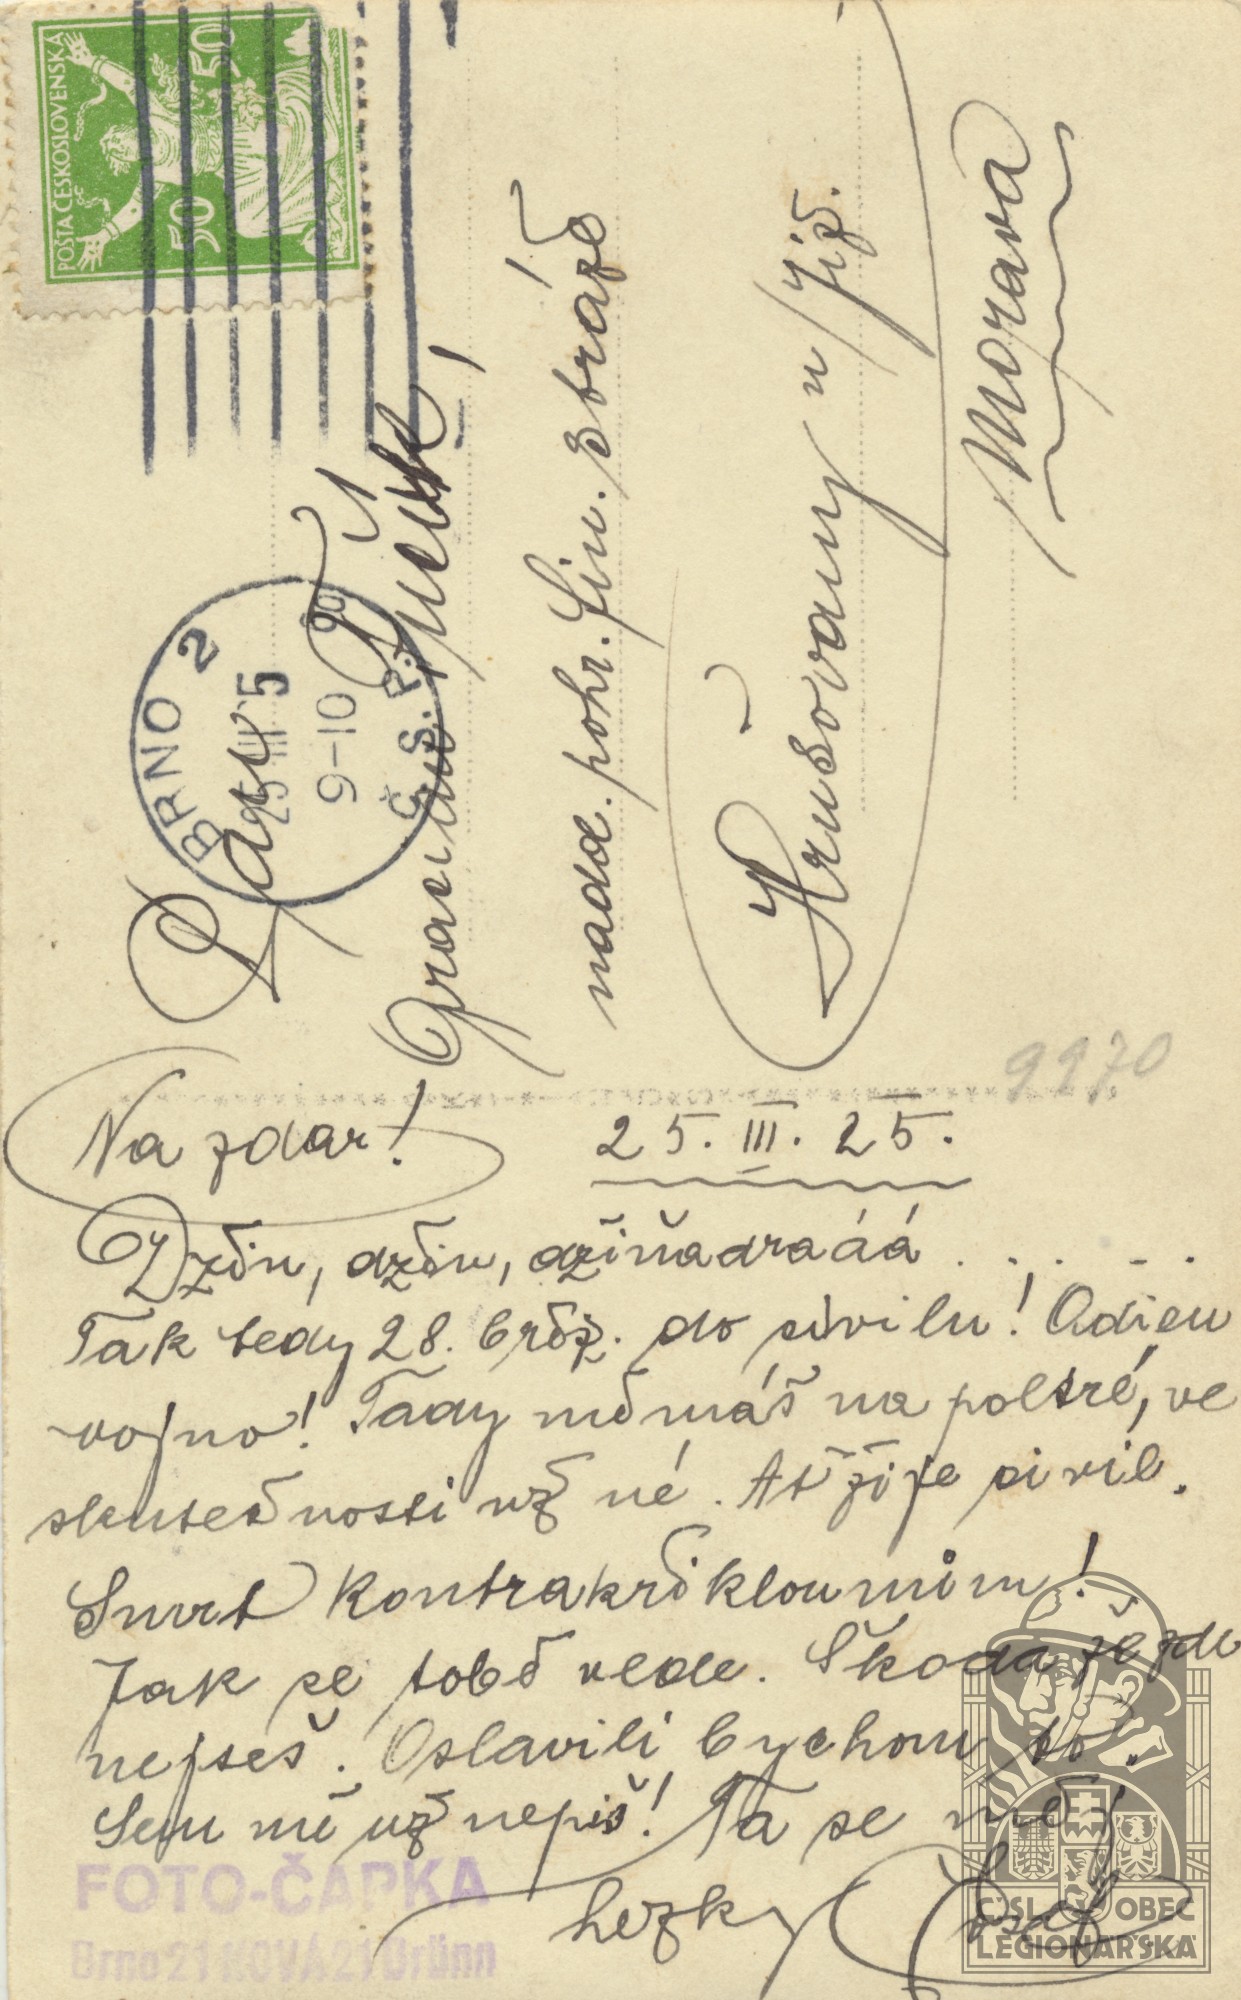 POŠTA ČESKOSLOVENSKÁ
50 50
BRNO 2
25 III 25
9-10
Č. S. P.
Pan
nadd. pohr. fin. stráže
Hrušovany n/Jiš.
Morava
9970
Na zdar!
25. III. 25.
Dzőin, dzőin, džiňadraáá . . . . .
Tak tedy 28. brőz. do sivilu! Adieu
vojno! Tady mě máš na poltré, ve
skutečnosti už né. Ať žije sivil.
Smrt kontrakřiklounům!
Jak se tobě vede. Škoda že zde
nejseš. Oslavili bychom to.
Sem mě už nepiš! Ta se měj
hezky Josef
FOTO-ČAPKA
Brno 21 NOVÁ 21 Brünn
ČSL. OBEC
LEGIONÁŘSKÁ